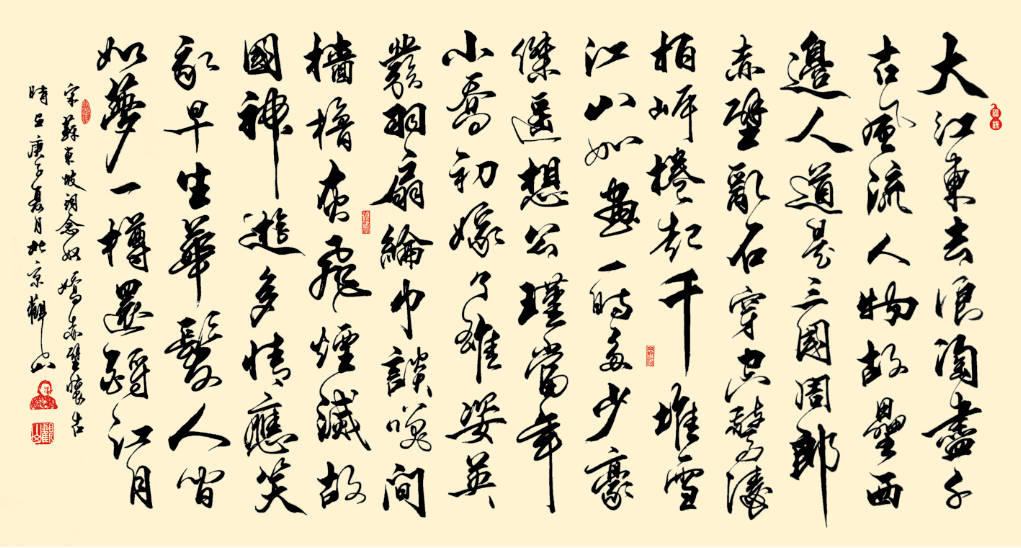 大江東去浪淘盡千
古風流人物故壘西
邊人道是三國周郎
赤壁亂石穿空驚濤
拍岸捲起千堆雪
江山如畫一時多少豪
傑遥想公瑾當年
小喬初嫁了雄姿英
發羽扇綸巾談笑间
檣櫓灰飛煙滅故
國神遊多情應笑
我早生華髮人间
如夢一樽還酹江月
宋蘇東坡詞念奴嬌赤壁懷古
時在庚子夏月北京觀山